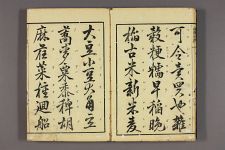 可令賣買也雜
穀粳糯早稲晩
稲古米新米麦
大豆小豆大角豆
蕎麥粟黍稗胡
麻荏菜種廻船